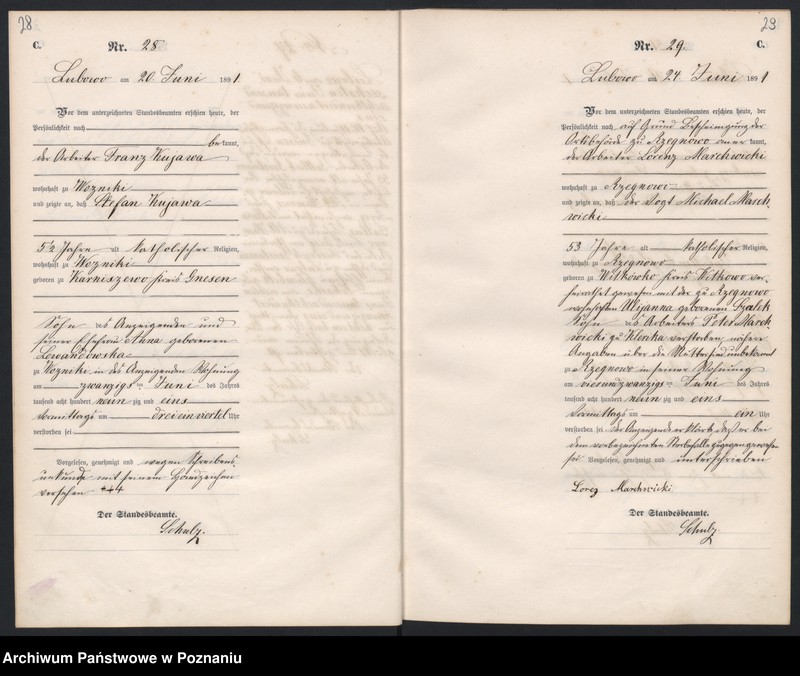 28
C.
Nr. 28
Lubowo am 20. Juni 1891
Vor dem unterzeichneten Standesbeamten erschien heute, der
Persönlichkeit nach
bekannt,
der Arbeiter Franz Kujawa
wohnhaft zu Wozniki
und zeigte an, daß Stefan Kujawa
5½ Jahre alt katholischer Religion,
wohnhaft zu Wozniki
geboren zu Karniszewo Kreis Gnesen
Sohn des Anzeigenden und
seiner Ehefrau Anna geborenen
Lewandowska
zu Wozniki in des Anzeigenden Wohnung
am zwanzigsten Juni des Jahres
tausend acht hundert neunzig und eins
Vormittags um dreieinviertel Uhr
verstorben sei
Vorgelesen, genehmigt und wegen Schreibens-
unkunde mit seinem Handzeichen
versehen +++
Der Standesbeamte.
Schulz.
29
C.
Nr. 29.
Lubowo am 24. Juni 1891
Vor dem unterzeichneten Standesbeamten erschien heute, der
Persönlichkeit nach auf Grund Bescheinigung der
Ortsbehörde zu Rzegnowo anerkannt,
der Arbeiter Lorenz Marchwicki
wohnhaft zu Rzegnowo
und zeigte an, daß der Vogt Michael March-
wicki
53 Jahre alt katholischer Religion,
wohnhaft zu Rzegnowo
geboren zu Witkowko Kreis Witkowo ver-
heirathet gewesen mit der zu Rzegnowo
wohnhaften geborenen
Sohn des Arbeiters Peter March-
wicki zu Klonka verstorben, nähere
Angaben über die Mutter sind unbekannt
zu Rzegnowo in seiner Wohnung
am vierundzwanzigsten Juni des Jahres
tausend acht hundert neunzig und eins
Vormittags um ein Uhr
verstorben sei. Der Anzeigende erklärte, daß er bei
dem vorbezeichneten Sterbefalle zugegen gewesen
sei. Vorgelesen, genehmigt und unterschrieben
Lorez Marchwicki
Der Standesbeamte.
Schulz.
Archiwum Państwowe w Poznaniu